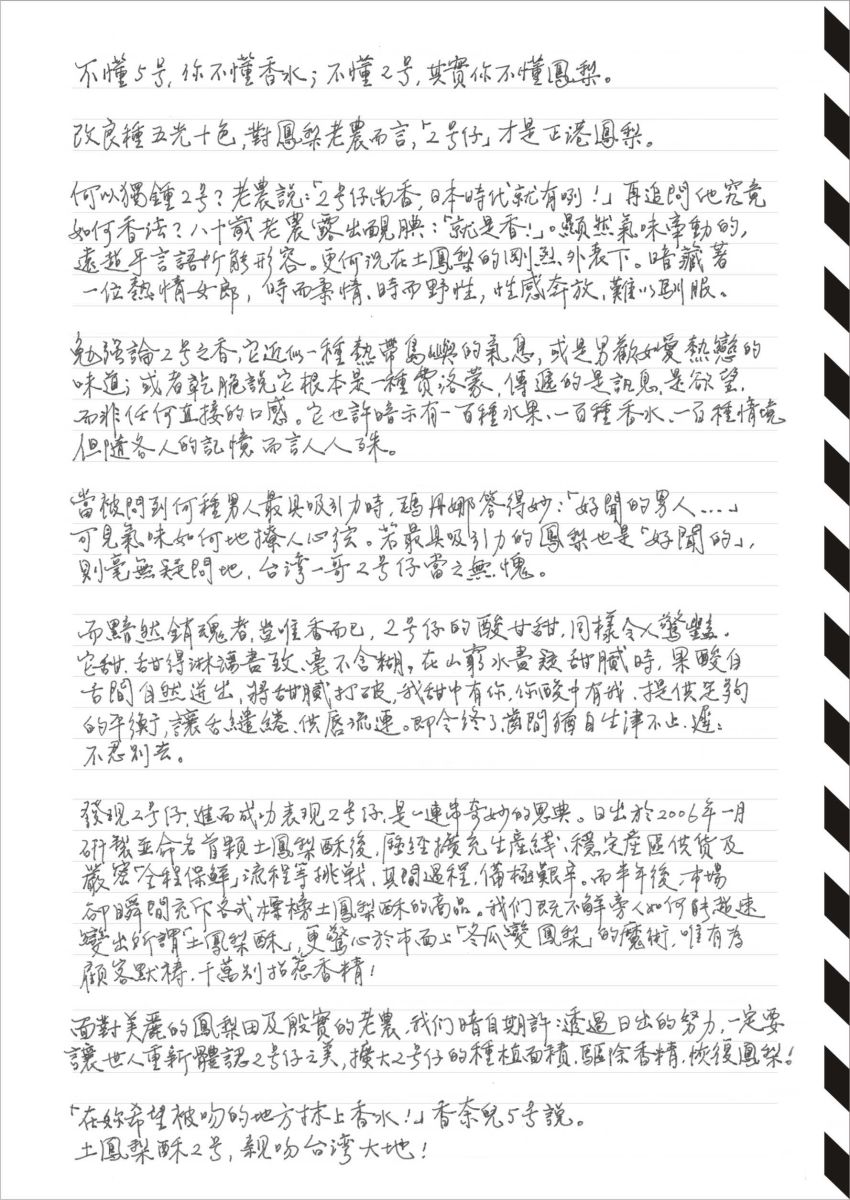 不懂5号,你不懂香水;不懂2号,其實你不懂鳳梨。
改良種五光十色,對鳳梨老農而言,「2号仔」才是正港鳳梨。
何以獨鍾2号?老農說:「2号仔尚香,日本時代就有咧!」再追問他究竟
如何香法?八十歲老農露出靦腆:「就是香!」。顯然氣味牽動的,
遠超乎言語所能形容。更何況在土鳳梨的剛烈外表下。暗藏著
一位熱情女郎,時而柔情、時而野性,性感奔放,難以馴服。
勉强論2号之香,它近似一種熱帶島嶼的氣息,或是男歡女愛熱戀的
味道;或者乾脆說它根本是一種費洛蒙,傳遞的是訊息,是欲望,
而非任何直接的口感。它也許暗示有一百種水果、一百種香水、一百種情境
但隨各人的記憶而言人人殊。
當被問到何種男人最具吸引力時,瑪丹娜答得妙:「好聞的男人....」
可見氣味如何地撩人心弦。若最具吸引力的鳳梨也是「好聞的」,
則毫無疑問地,台湾一哥2号仔當之無愧。
而黯然銷魂者,豈唯香而已,2号仔的酸甘甜,同樣令人驚豔。
它甜,甜得淋漓盡致、毫不含糊。在山窮水盡疑甜膩時,果酸自
舌間自然迸出,將甜膩打破,我甜中有你,你酸中有我,提供足夠
的平衡,讓舌繾綣、供唇流連。即令終了,齒間猶自生津不止,遲遲
不忍別去。
發現2号仔,進而成功表現2号仔,是一連串奇妙的恩典。日出於2006年一月
研製並命名首顆土鳳梨酥後,歷經擴充生產綫、穩定產區供貨及
嚴密「全程保鮮」流程等挑戰,其間過程,備極艱辛。而半年後,市場
卻瞬間充斥各式標榜土鳳梨酥的商品。我們既不解旁人如何能超速
變出所謂「土鳳梨酥」,更驚心於市面上「冬瓜變鳳梨」的魔術,唯有為
顧客默禱,千萬別招惹香精!
面對美麗的鳳梨田及殷實的老農,我們暗自期許:透過日出的努力,一定要
讓世人重新體認2号仔之美,擴大2号仔的種植面積,驅除香精,恢復鳳梨!
「在妳希望被吻的地方抹上香水!」香奈兒5号說。
土鳳梨酥2号,親吻台湾大地!